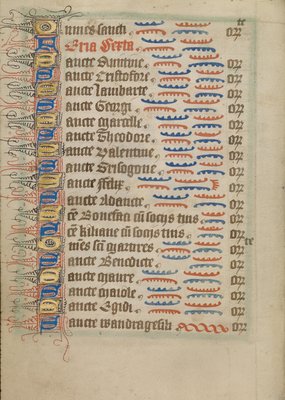 Omnes sancti or̄
Feria Sexta
Sancte Quintine or̄
Sancte Cristofore or̄
Sancte Lamberte or̄
Sancte Georgi or̄
Sancte Marcelle or̄
Sancte Theodore or̄
Sancte Valentine or̄
Sancte Grisogone or̄
Sancte felix or̄
Sancte Adaucte or̄
Sc̄e Bonefaci cū socijs tuis or̄
Sc̄e kiliane cū socijs tuis or̄
Om̄es sc̄i martires or̄
Sancte Benedicte or̄
Sancte Maure or̄
Sancte Maiole or̄
Sancte Egidi or̄
Sancte wandragesili or̄